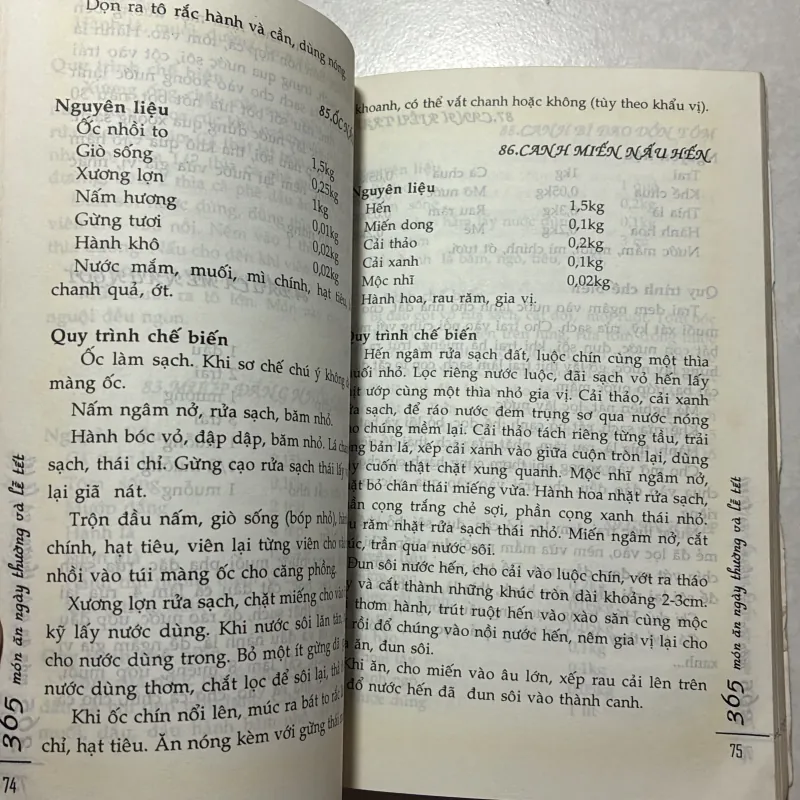 Dọn ra tô rắc hành và cần, dùng nóng.
85.ỐC
Nguyên liệu
Ốc nhồi to 1,5kg
Giò sống 0,25kg
Xương lợn 1kg
Nấm hương 0,01kg
Gừng tươi 0,02kg
Hành khô 0,02kg
Nước mắm, muối, mì chính, hạt tiêu,
chanh quả, ớt.
Quy trình chế biến
Ốc làm sạch. Khi sơ chế chú ý không
màng ốc.
Nấm ngâm nở, rửa sạch, băm nhỏ.
Hành bóc vỏ, đập dập, băm nhỏ. Lá
sạch, thái chỉ. Gừng cạo rửa sạch thái
lại giã nát.
Trộn đầu nấm, giò sống (bóp nhỏ),
chính, hạt tiêu, viên lại từng viên cho
nhồi vào túi màng ốc cho căng phồng
Xương lợn rửa sạch, chặt miếng cho
kỹ lấy nước dùng. Khi nước sôi lăn tăn,
cho nước dùng trong. Bỏ một ít gừng
nước dùng thơm, chắt lọc để sôi lại,
Khi ốc chín nổi lên, múc ra bát to
chỉ, hạt tiêu. Ăn nóng kèm với gừng thái
365 món ăn ngày thường và lễ tết
74
khoanh, có thể vắt chanh hoặc không (tùy theo khẩu vị).
86.CANH MIẾN NẤU HẾN
Nguyên liệu
Hến 1,5kg
Miến dong 0,1kg
Cải thảo 0,2kg
Cải xanh 0,1kg
Mộc nhĩ 0,02kg
Hành hoa, rau răm, gia vị.
Quy trình chế biến
Hến ngâm rửa sạch đất, luộc chín cùng một thìa
muối nhỏ. Lọc riêng nước luộc, đãi sạch vỏ hến lấy
ướp cùng một thìa nhỏ gia vị. Cải thảo, cải xanh
sạch, để ráo nước đem trụng sơ qua nước nóng
cho chúng mềm lại. Cải thảo tách riêng từng tầu, trải
bản lá, xếp cải xanh vào giữa cuộn tròn lại, dùng
cuốn thật chặt xung quanh. Mộc nhĩ ngâm nở,
bỏ chân thái miếng vừa. Hành hoa nhặt rửa sạch,
phần cọng trắng chẻ sợi, phần cọng xanh thái nhỏ.
răm nhặt rửa sạch thái nhỏ. Miến ngâm nở, cắt
trần qua nước sôi.
Đun sôi nước hến, cho cải vào luộc chín, vớt ra tháo
và cắt thành những khúc tròn dài khoảng 2-3cm.
thơm hành, trút ruột hến vào xào săn cùng mộc
rồi đổ chúng vào nồi nước hến, nêm gia vị lại cho
ăn, đun sôi.
Khi ăn, cho miến vào âu lớn, xếp rau cải lên trên
đổ nước hến đã đun sôi vào thành canh.
365 món ăn ngày thường và lễ tết
75